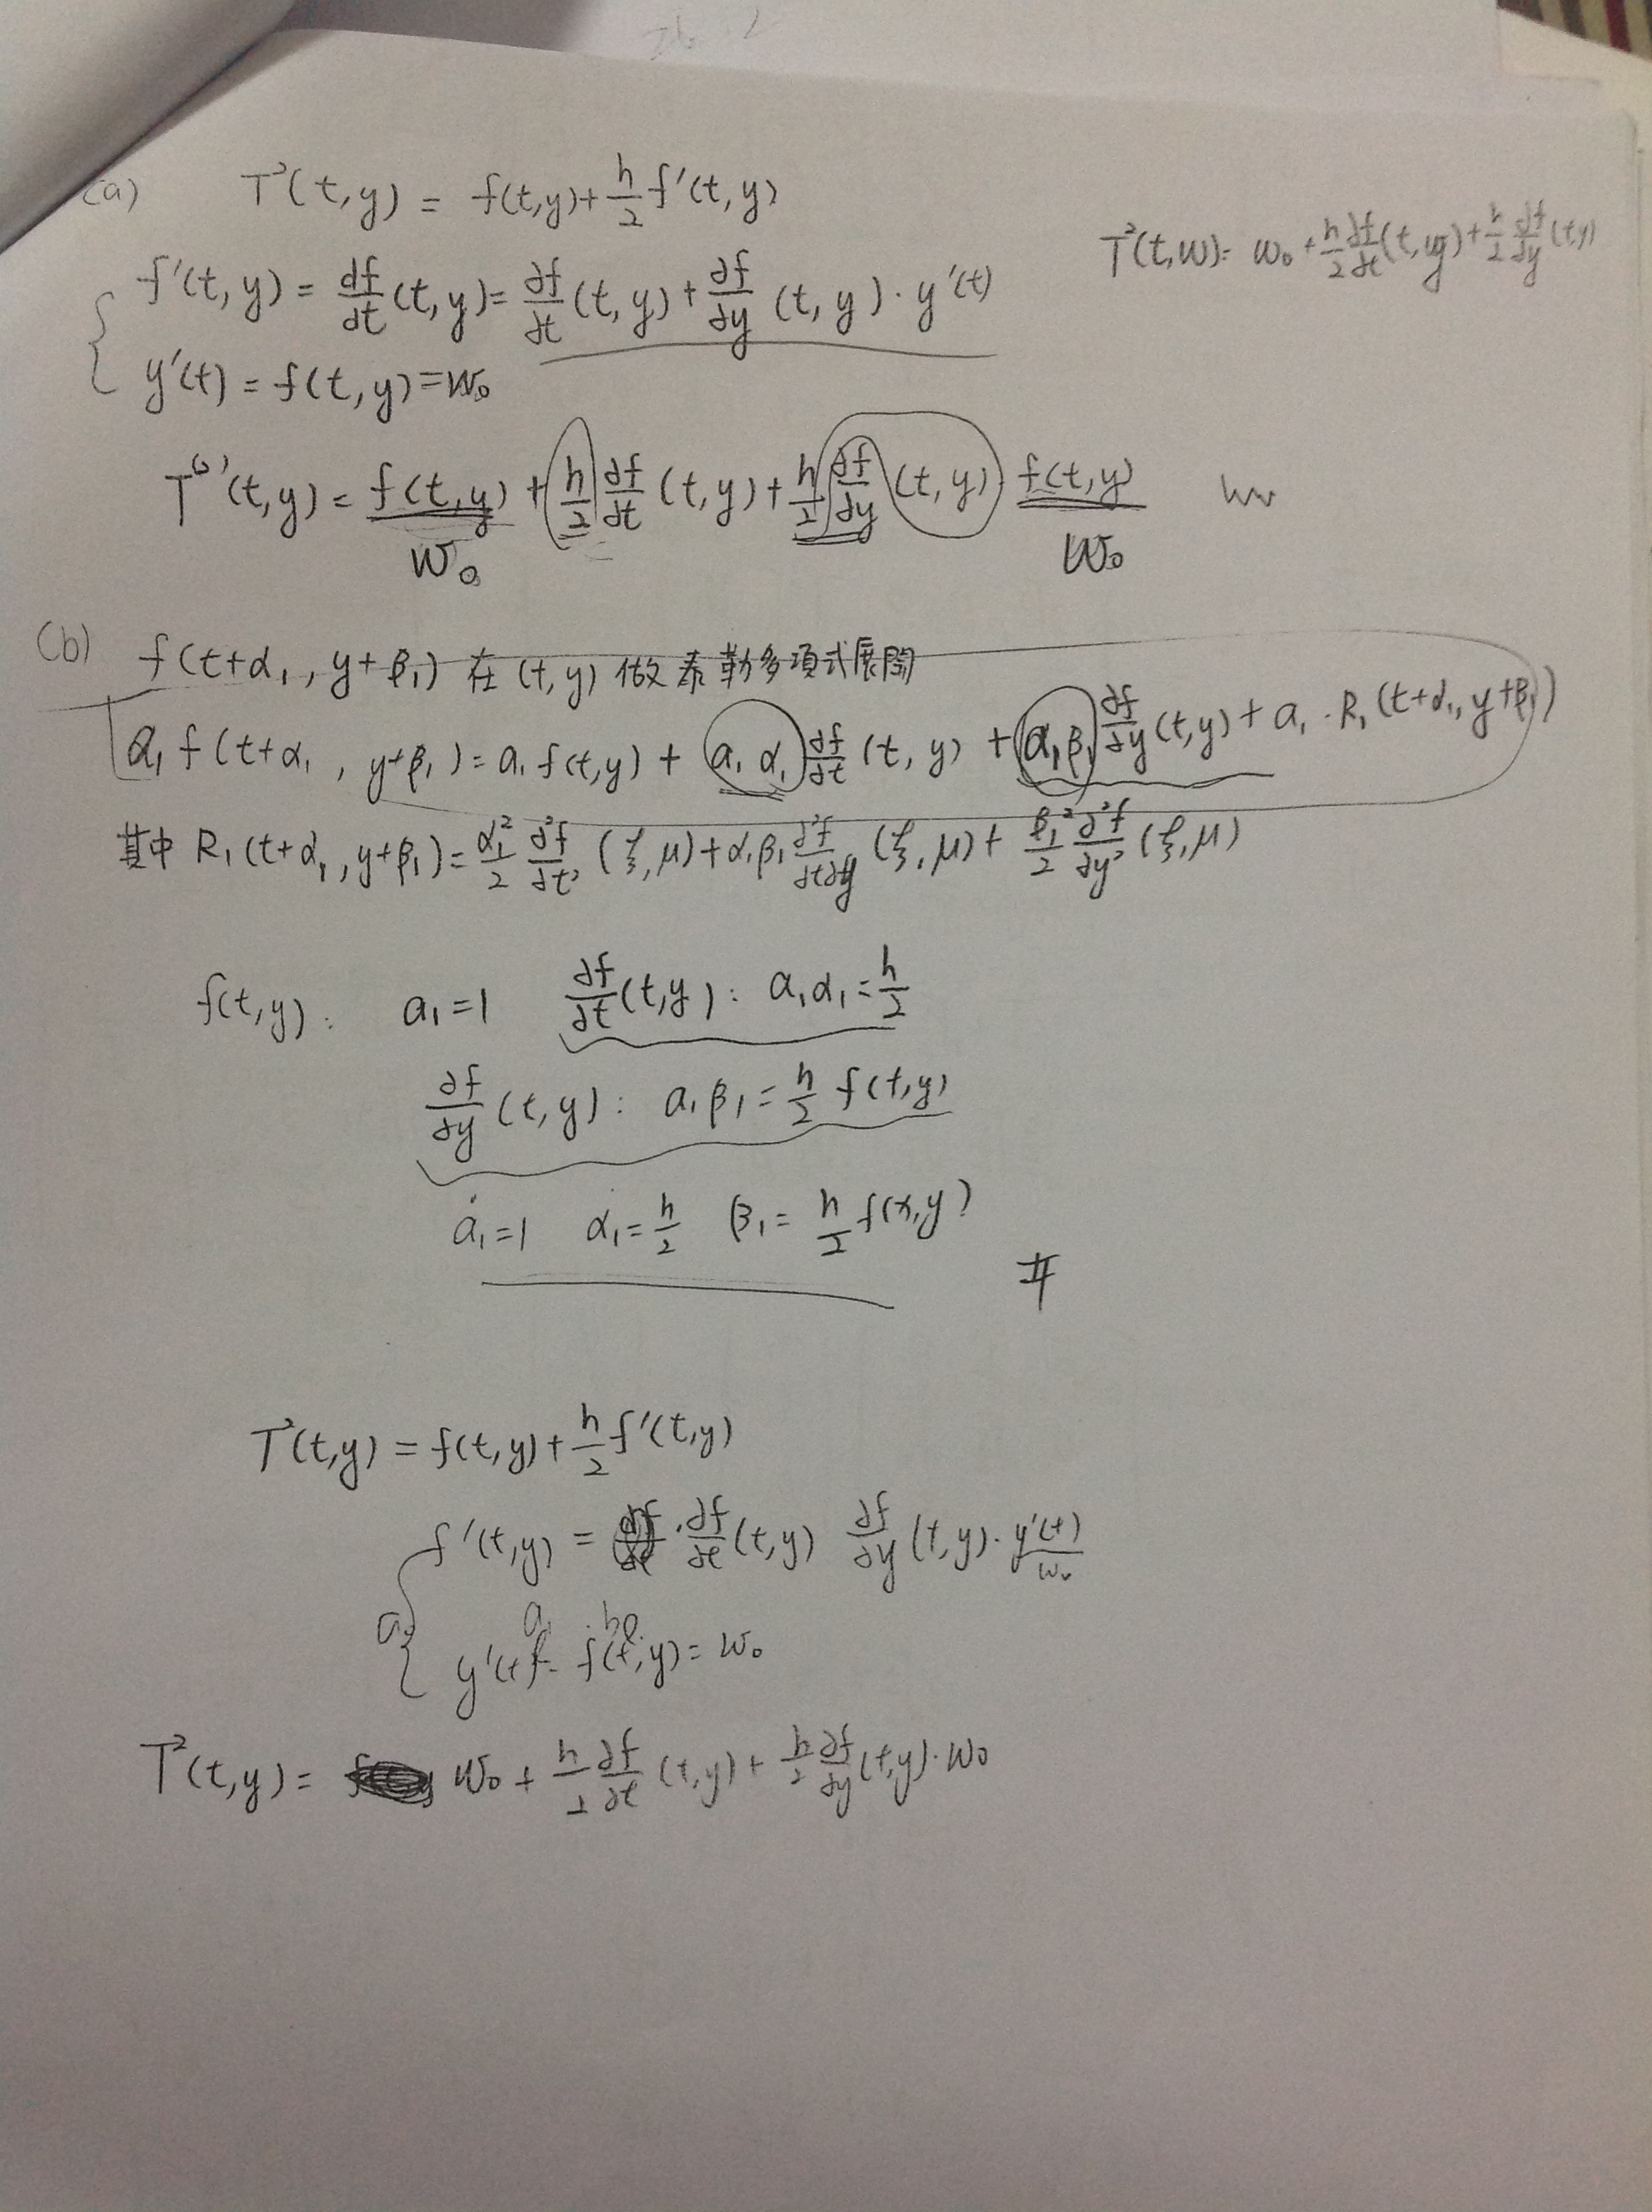 (a) T²(t,y) = f(t,y) + h/2 f'(t,y)
T²(t,w) = w₀ + h/2 ∂f/∂t (t,y) + h/2 ∂f/∂y (t,y)
f'(t,y) = df/dt (t,y) = ∂f/∂t (t,y) + ∂f/∂y (t,y) · y'(t)
y'(t) = f(t,y) = w₀
T⁽²⁾(t,y) = f(t,y) + h/2 ∂f/∂t (t,y) + h/2 ∂f/∂y (t,y) f(t,y)
w₀ w₀
(b) f(t+α₁, y+β₁) 在 (t,y) 做泰勒多項式展開
a₁ f(t+α₁, y+β₁) = a₁ f(t,y) + a₁α₁ ∂f/∂t (t,y) + a₁β₁ ∂f/∂y (t,y) + a₁·R₁(t+α₁, y+β₁)
其中 R₁(t+α₁, y+β₁) = α₁²/2 ∂²f/∂t² (ξ,μ) + α₁β₁ ∂²f/∂t∂y (ξ,μ) + β₁²/2 ∂²f/∂y² (ξ,μ)
f(t,y): a₁=1 ∂f/∂t (t,y): a₁α₁ = h/2
∂f/∂y (t,y): a₁β₁ = h/2 f(t,y)
a₁=1 α₁=h/2 β₁= h/2 f(x,y)
#
T²(t,y) = f(t,y) + h/2 f'(t,y)
f'(t,y) = ∂f/∂t (t,y) ∂f/∂y (t,y) · y'(t)
w₀
y'(t) = f(t,y) = w₀
T²(t,y) = w₀ + h/2 ∂f/∂t (t,y) + h/2 ∂f/∂y (t,y) · w₀